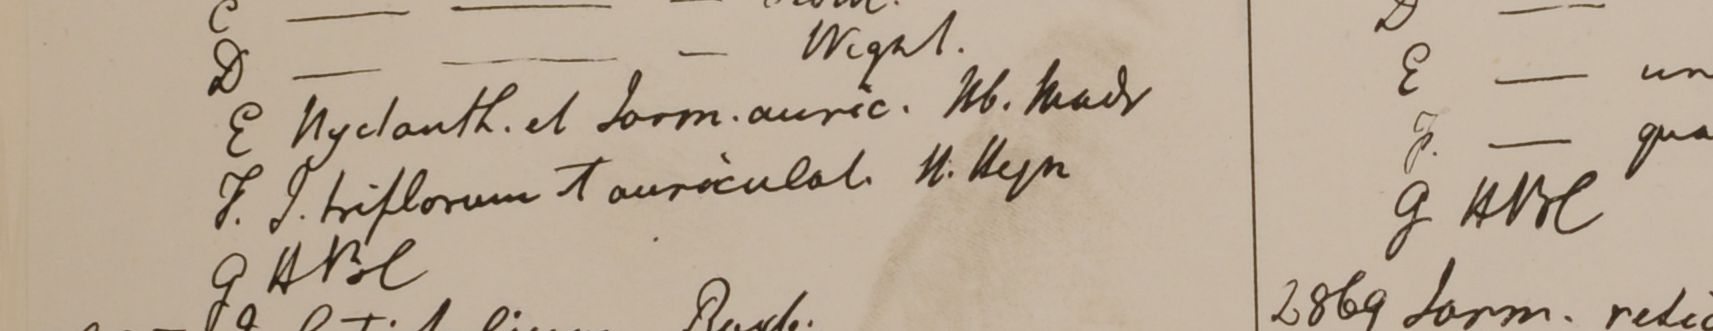 C — — —
D — — — Wight.
E Nyctanth. et Jasm. auric. Hb. Madr
F. J. triflorum + auriculat. H. Heyn
G HBC
Roxb.
D —
E — un
F. — qua
G HBC
2869 Jasm. retic